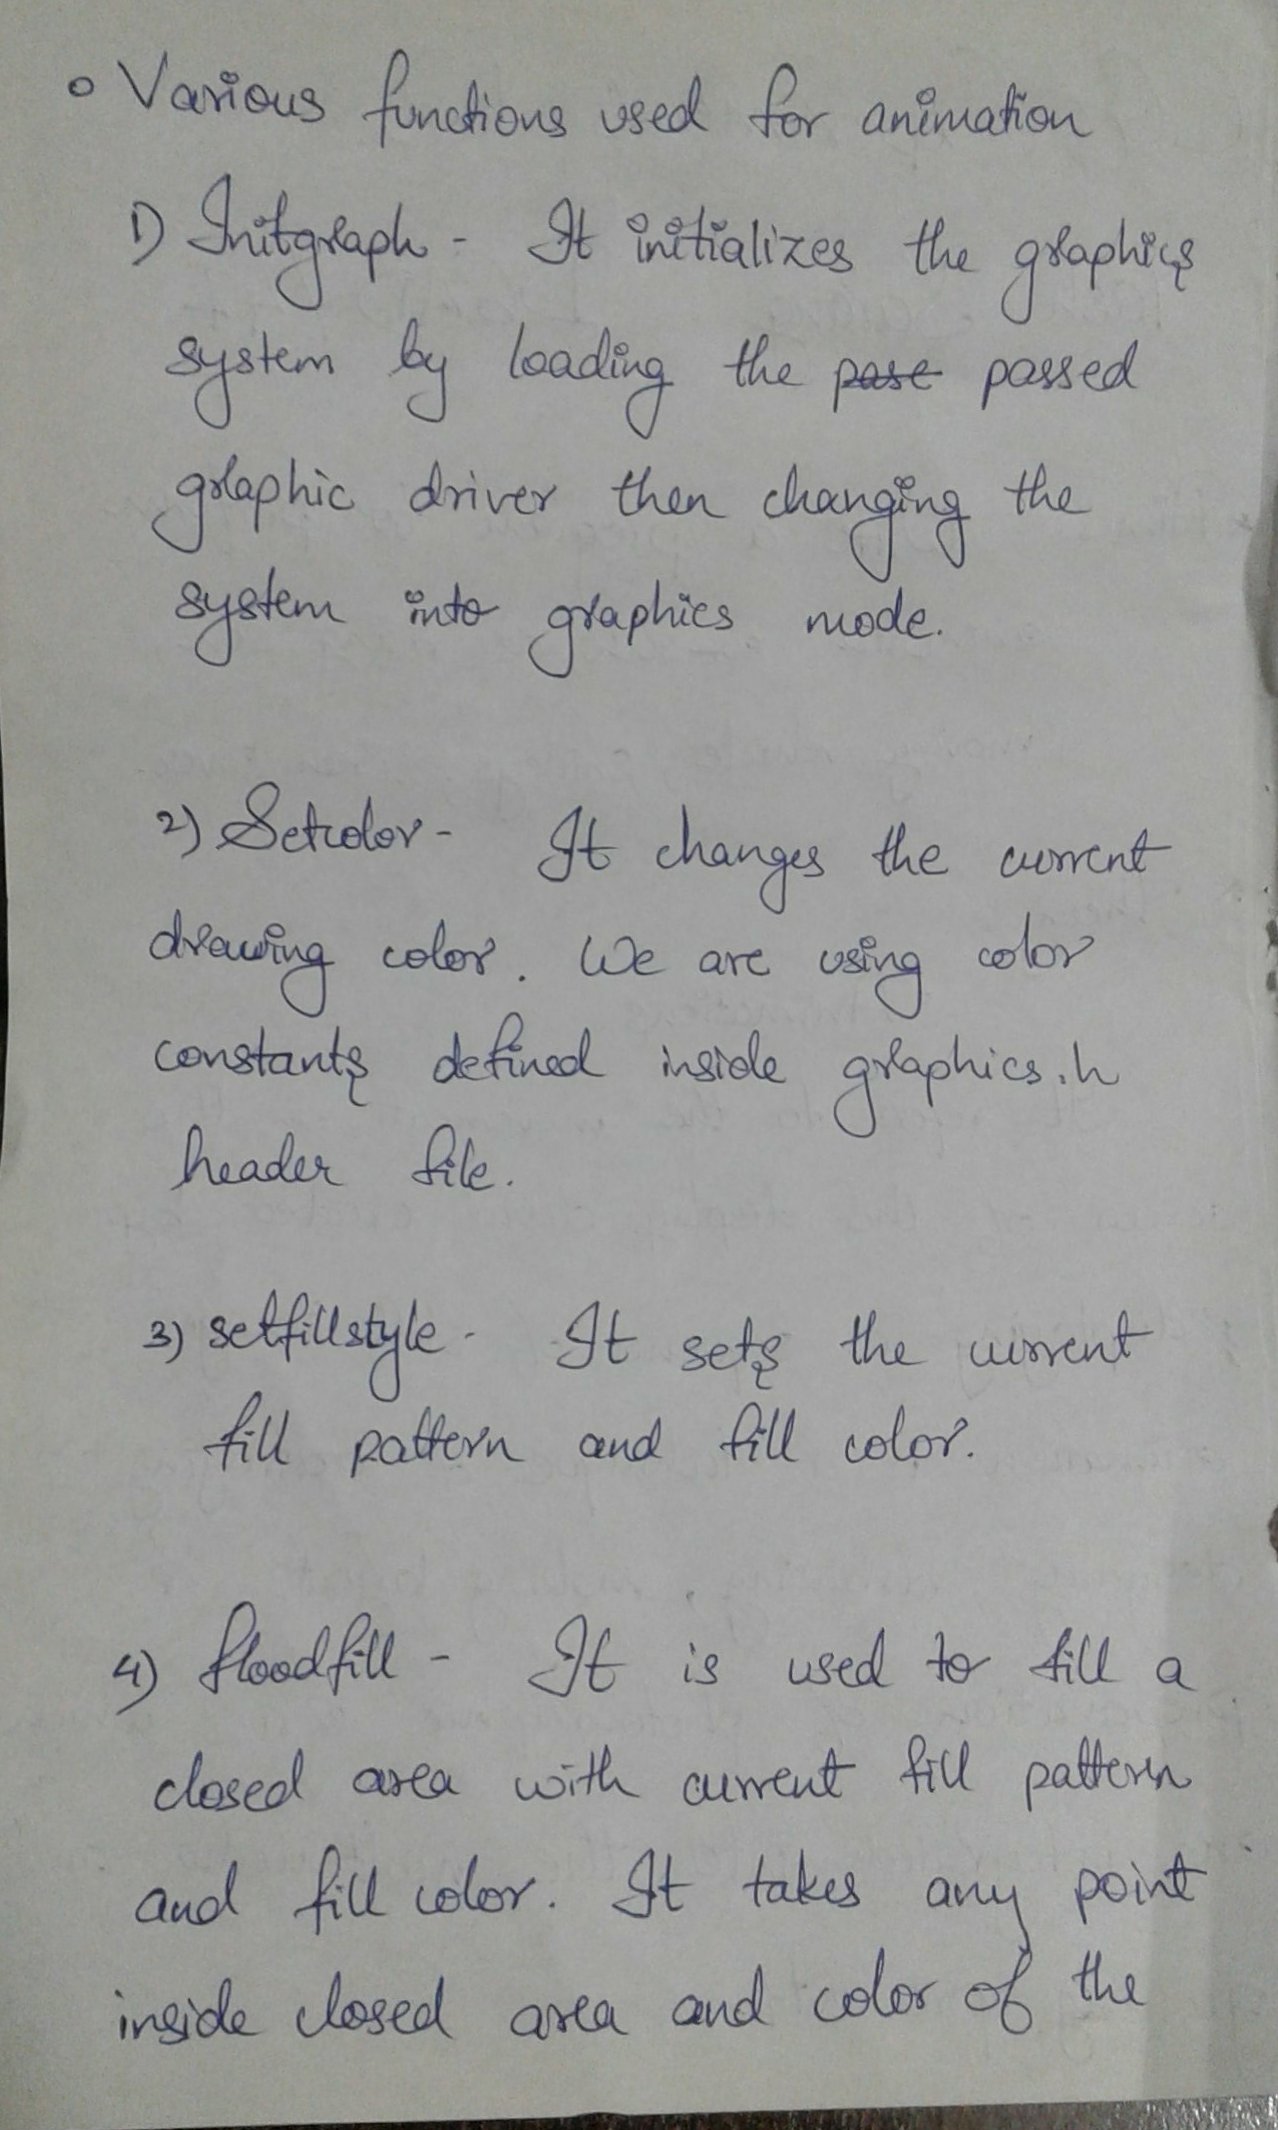 ◦ Various functions used for animation
1) Initgraph - It initializes the graphics
system by loading the pase passed
graphic driver then changing the
system into graphics mode.
2) Setcolor - It changes the current
drawing color. We are using color
constants defined inside graphics.h
header file.
3) setfillstyle - It sets the current
fill pattern and fill color.
4) floodfill - It is used to fill a
closed area with current fill pattern
and fill color. It takes any point
inside closed area and color of the